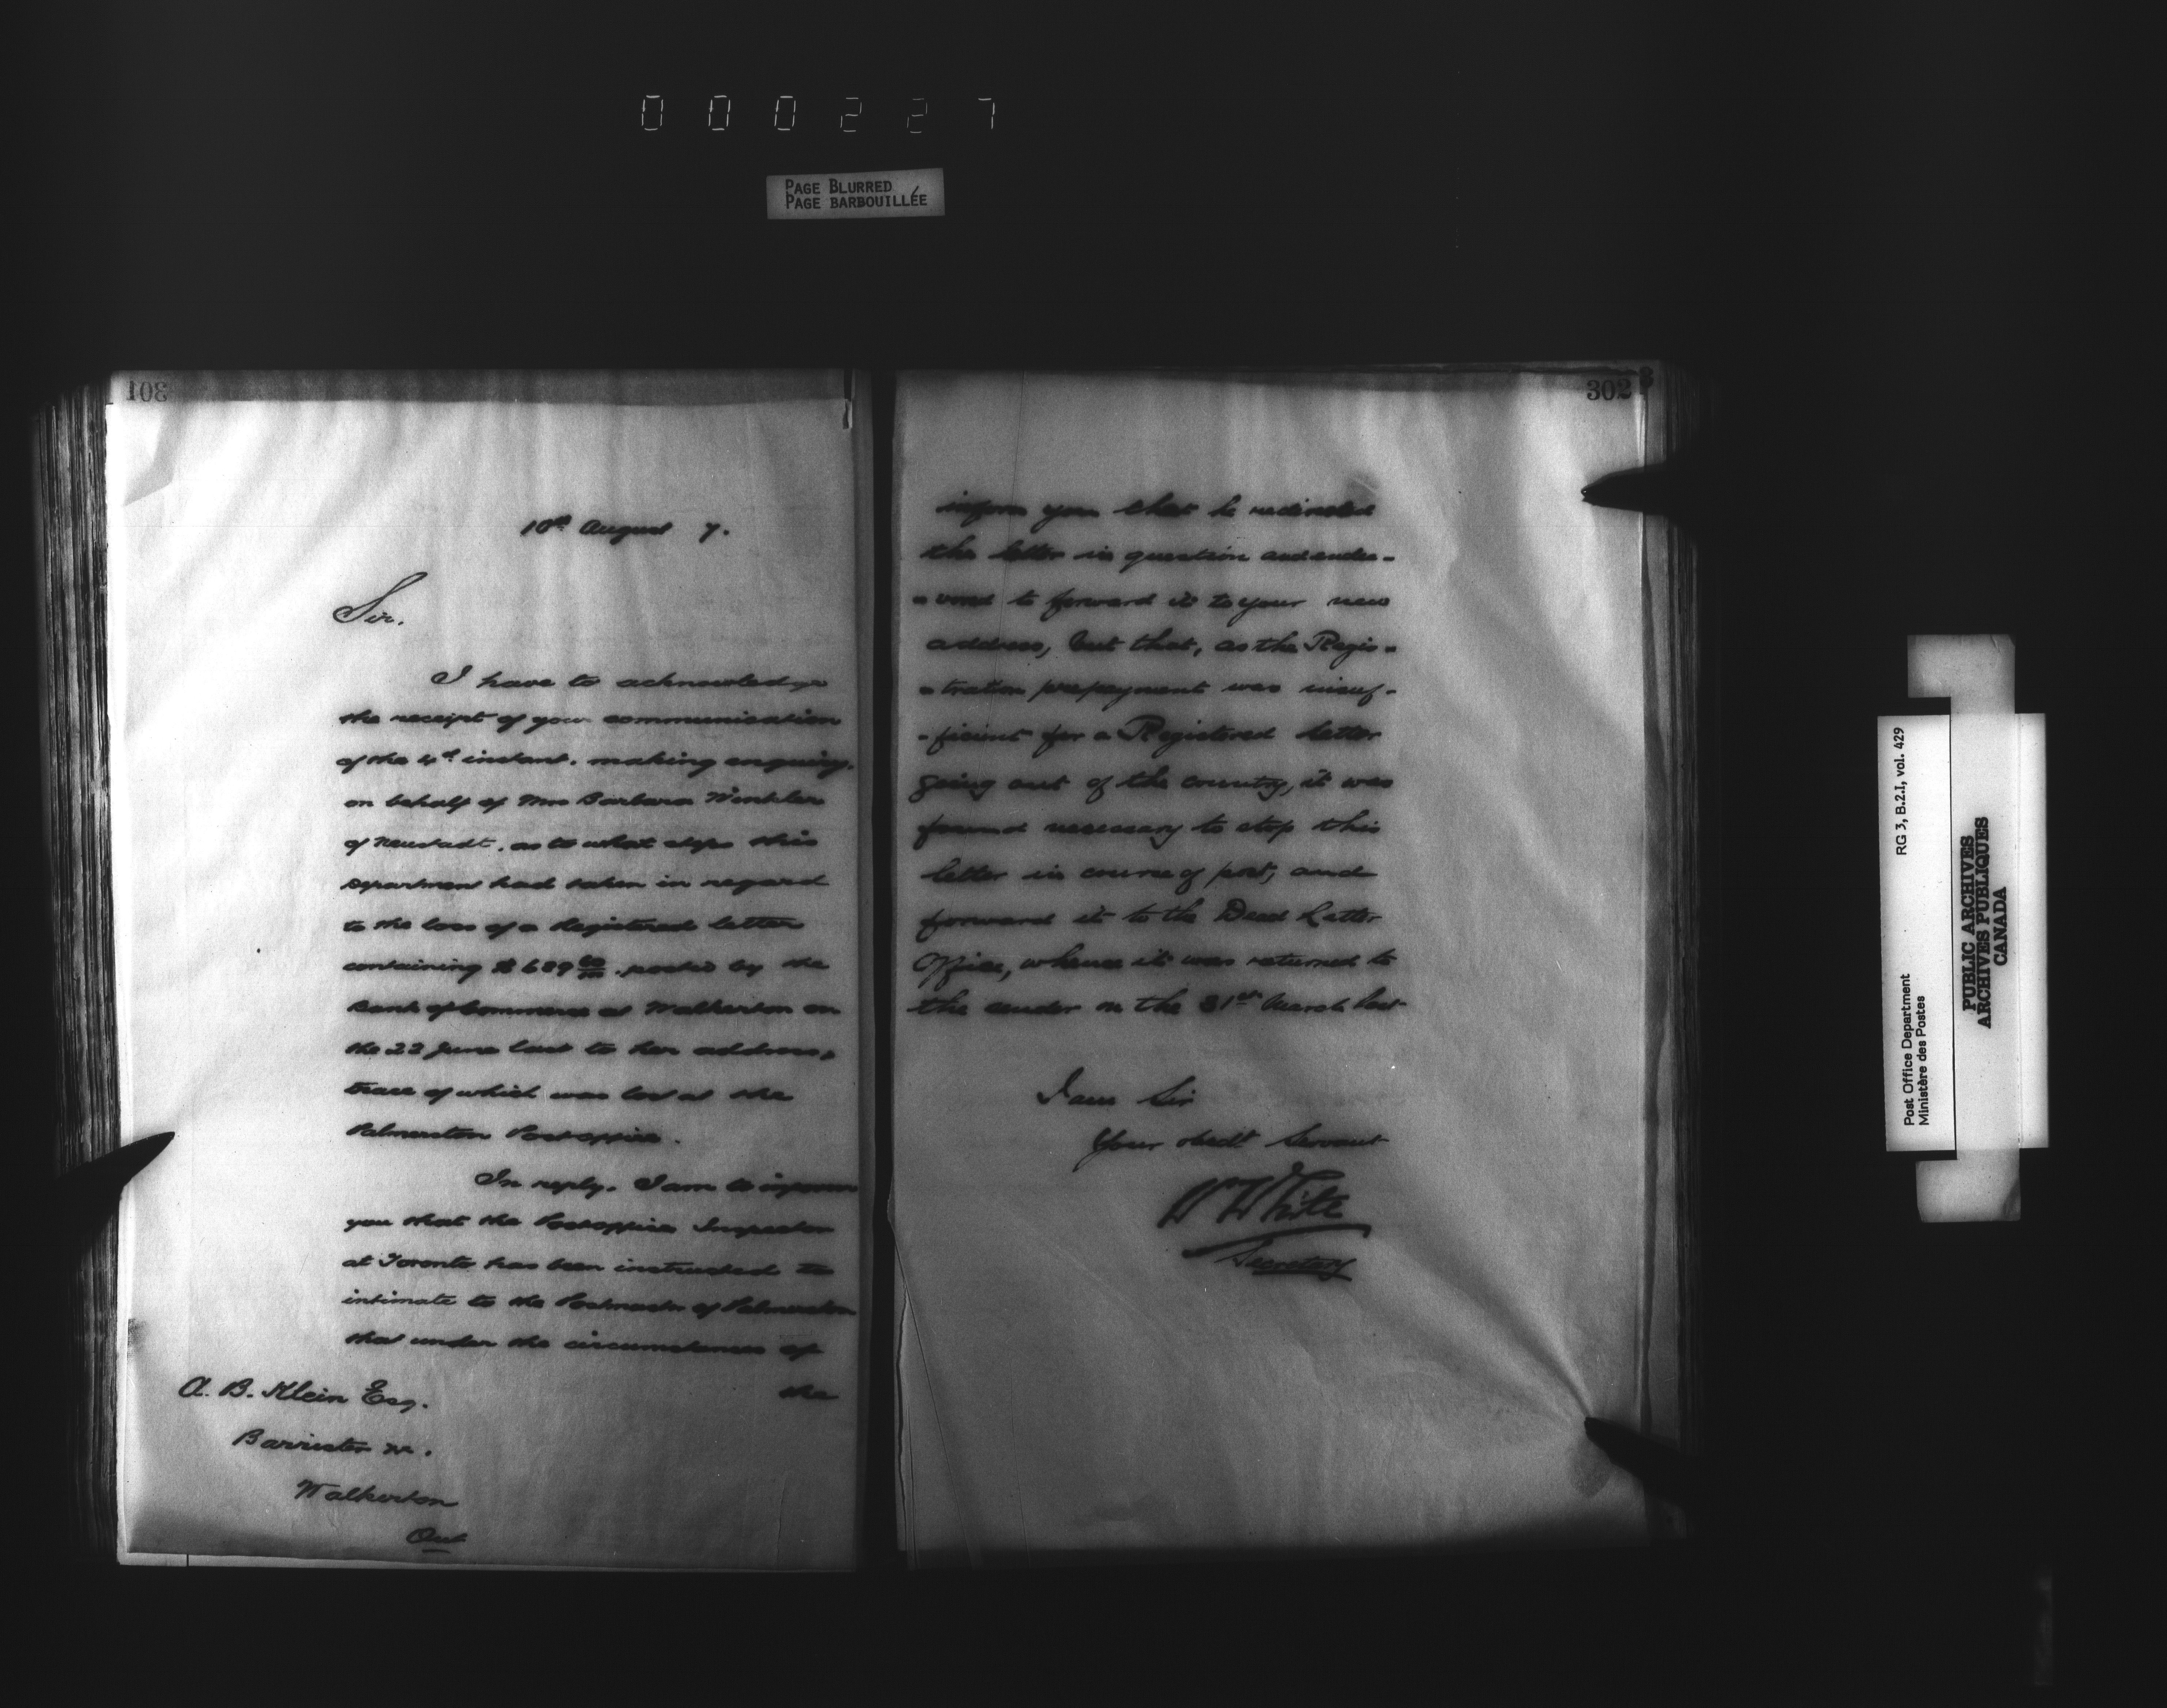 000227
PAGE BLURRED
PAGE BARBOUILLÉE
301
10th August 7.
Sir.
I have to acknowledge
the receipt of your communication
of the 4th instant. making enquiry.
on behalf of Mrs Barbara Winkler
of Neustadt. as to what steps this
Department had taken in regard
to the loss of a Registered letter
containing $689 posted by the
Bank of Commerce at Walkerton on
the 22 June last to her address,
trace of which was lost at the
Palmerston Post office.
In reply. I am to inform
you that the Post office Inspector
at Toronto has been instructed to
intimate to the Postmaster of Palmerston
that under the circumstances of
the
A. B. Klein Esq.
Barrister &c.
Walkerton
Ont
302
inform you that he redirected
the letter in question and endea-
-vored to forward it to your new
address, but that, as the Regis-
-tration prepayment was insuf-
-ficient for a Registered letter
going out of the country, it was
found necessary to stop this
letter in course of post, and
forward it to the Dead Letter
Office, whence it was returned to
the sender on the 31st March last
I am Sir
Your obedt Servant
W White
Secretary
Post Office Department RG 3, B.2.I, vol. 429
Ministère des Postes
PUBLIC ARCHIVES
ARCHIVES PUBLIQUES
CANADA